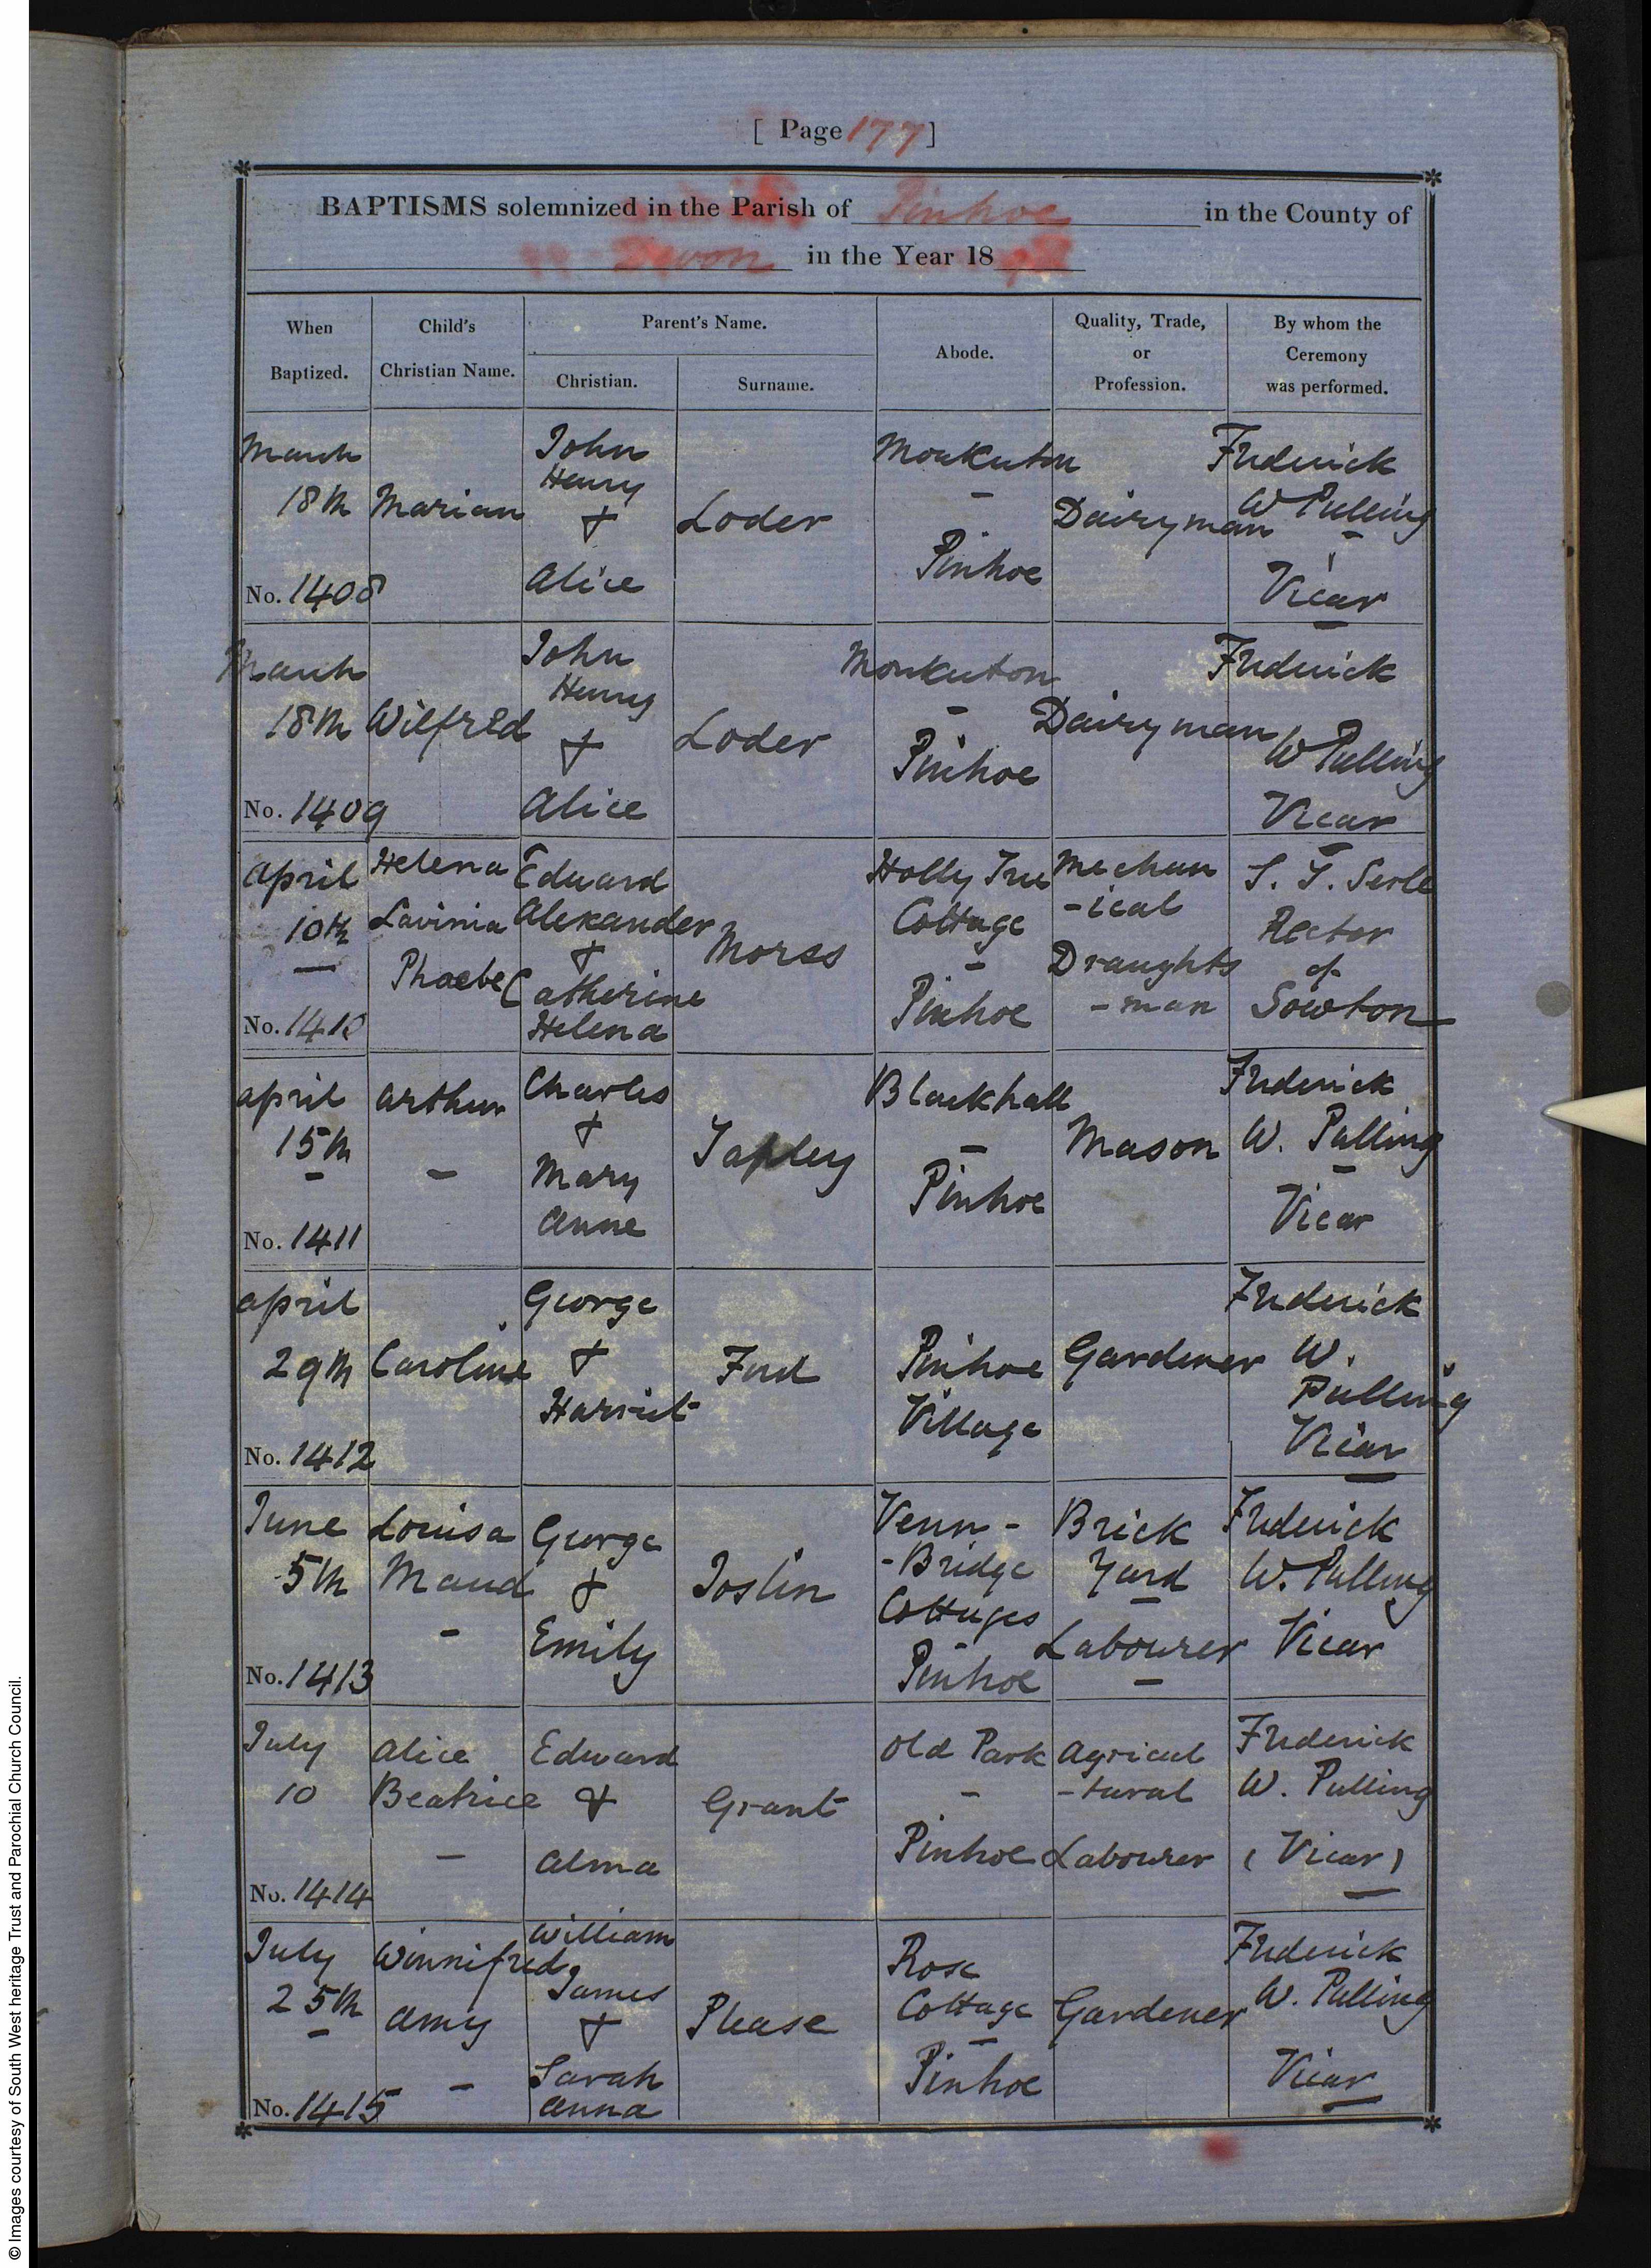 [ Page 177 ]
BAPTISMS solemnized in the Parish of Pinhoe in the County of
Devon in the Year 18
When Baptized.
Child's Christian Name.
Parent's Name.
Christian.
Surname.
Abode.
Quality, Trade, or Profession.
By whom the Ceremony was performed.
March
18th
No. 1408
Marian
John
Henry
+
Alice
Loder
Monkerton
-
Pinhoe
Dairyman
Frederick
W Pulling
-
Vicar
March
18th
No. 1409
Wilfred
John
Henry
+
Alice
Loder
Monkerton
-
Pinhoe
Dairyman
Frederick
W Pulling
Vicar
April
10th
No. 1410
Helena
Lavinia
Phoebe
Edward
Alexander
+
Catherine
Helena
Morss
Holly Tree
Cottage
-
Pinhoe
Mechan
-ical
Draughts
-man
S. T. Serle
Rector
of
Sowton
April
15th
-
No. 1411
Arthur
-
Charles
+
Mary
Anne
Tapley
Blackhall
-
Pinhoe
Mason
Frederick
W. Pulling
-
Vicar
April
29th
No. 1412
Caroline
George
+
Harriet
Ford
Pinhoe
Village
Gardener
Frederick
W.
Pulling
Vicar
June
5th
No. 1413
Louisa
Maud
-
George
+
Emily
Joslin
Venn -
- Bridge
Cottages
-
Pinhoe
Brick
Yard
-
Labourer
-
Frederick
W. Pulling
Vicar
July
10
No. 1414
Alice
Beatrice
-
Edward
+
Alma
Grant
Old Park
-
Pinhoe
Agricul
-tural
Labourer
Frederick
W. Pulling
( Vicar )
July
25th
-
No. 1415
Winnifred
Amy
-
William
James
+
Sarah
Anna
Please
Rose
Cottage
-
Pinhoe
Gardener
Frederick
W. Pulling
Vicar
© Images courtesy of South West heritage Trust and Parochial Church Council.